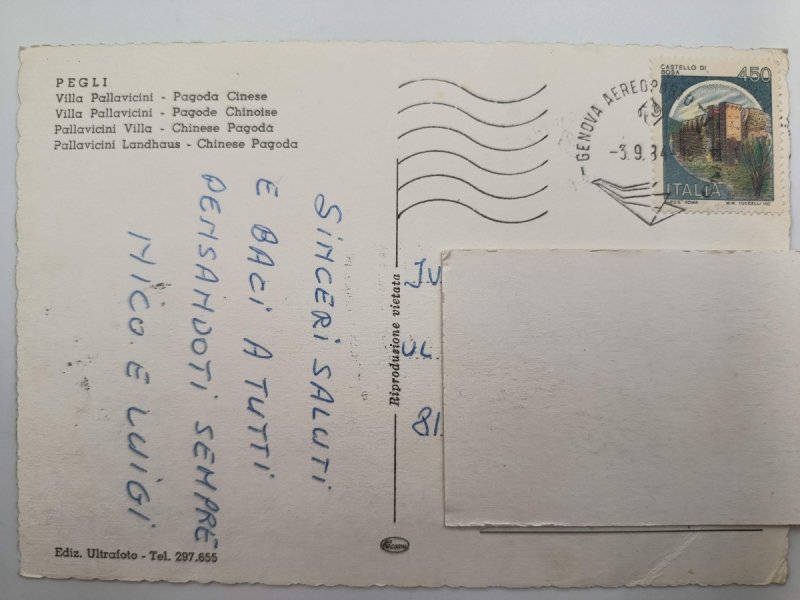 PEGLI
Villa Pallavicini - Pagoda Cinese
Villa Pallavicini - Pagode Chinoise
Pallavicini Villa - Chinese Pagoda
Pallavicini Landhaus - Chinese Pagoda
SINCERI SALUTI
E BACI A TUTTI
PENSANDOTI SEMPRE
NICO E LUIGI
Ediz. Ultrafoto - Tel. 297.655
Riproduzione vietata
GENOVA AEREOPORTO
-3.9.84
CASTELLO DI
BOSA
450
ITALIA
UL.
81